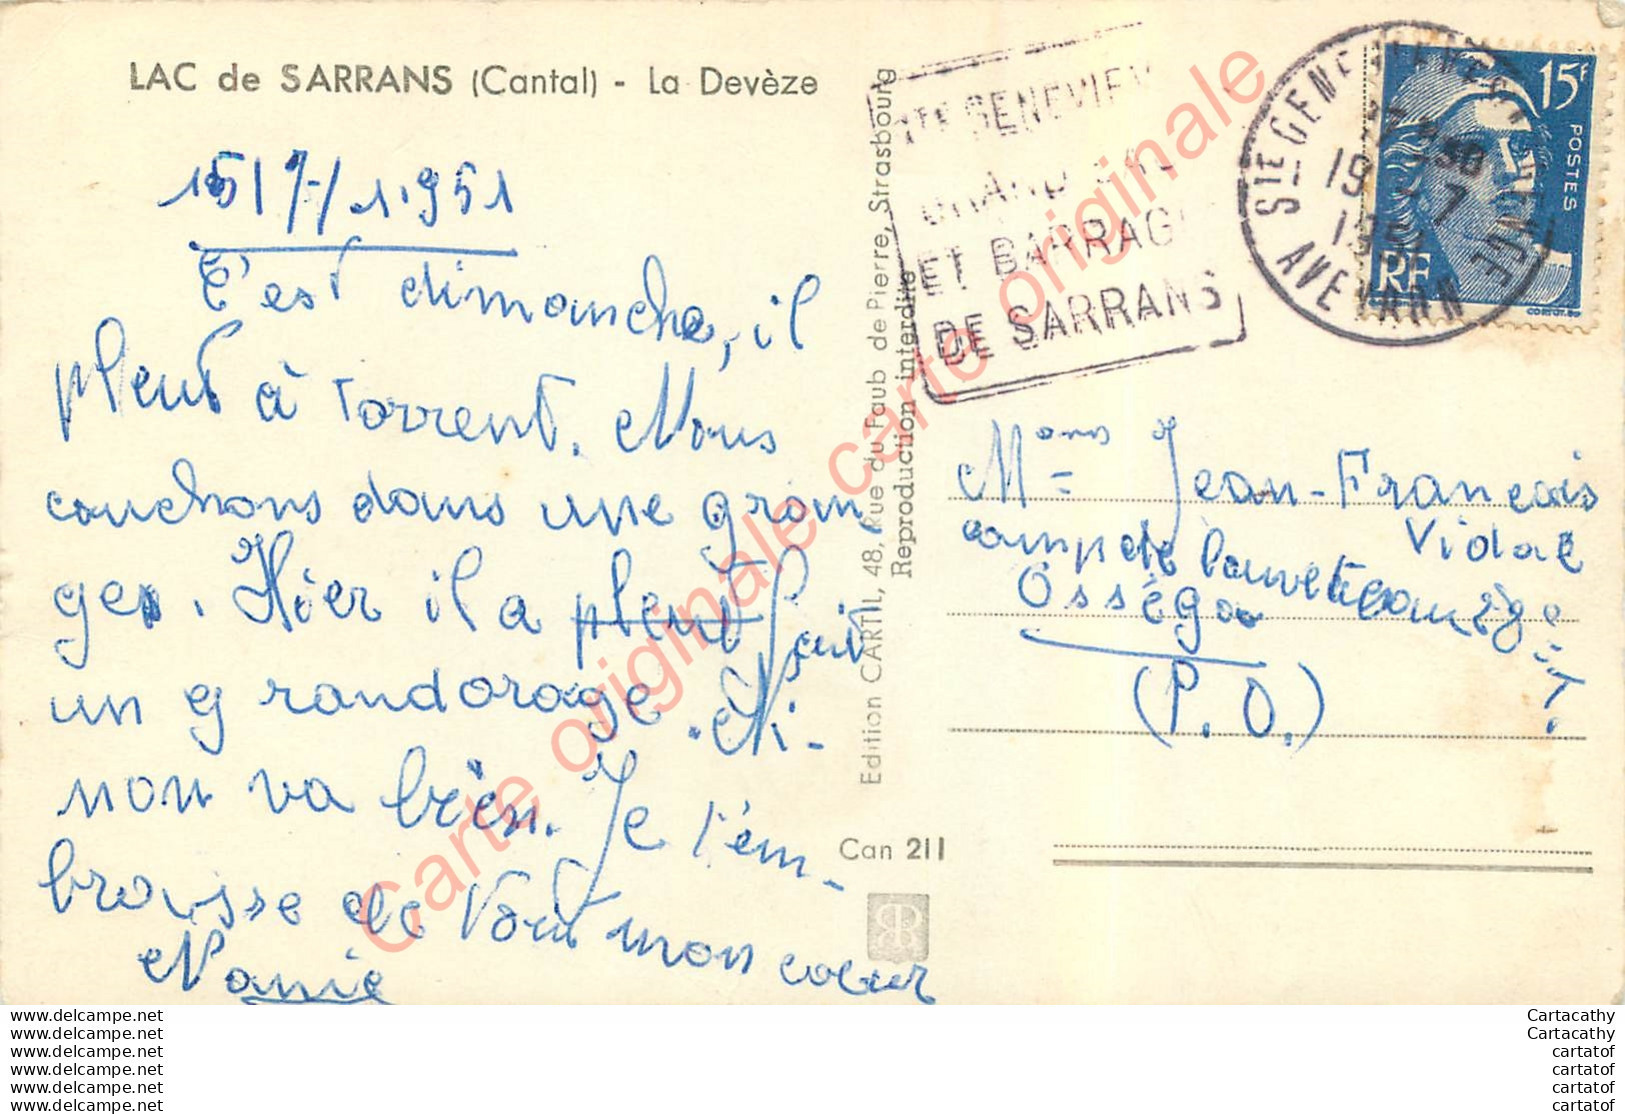 LAC de SARRANS (Cantal) - La Devèze
15/7/1.951
C'est dimanche, il
pleut à torrent. Nous
couchons dans une gran
ges. Hier il a pleut fait
un grand orage. Ni-
non va bien. Je t'em-
brasse de tout mon coeur
Nanie
Edition CARTIL, 48, Rue du Faub de Pierre, Strasbourg
Reproduction interdite
Can 211
STE GENEVIEV
GRAND
ET BARRAGE
DE SARRANS
STE GENEVIEVE
19 - 7
1951
AVEYRON
15F
POSTES
RF
Mons Jean-Francois
Vidal
camp de
Osségo
(P.O.)
Carte originale carte originale
www.delcampe.net
www.delcampe.net
www.delcampe.net
www.delcampe.net
www.delcampe.net
www.delcampe.net
Cartacathy
Cartacathy
cartatof
cartatof
cartatof
cartatof